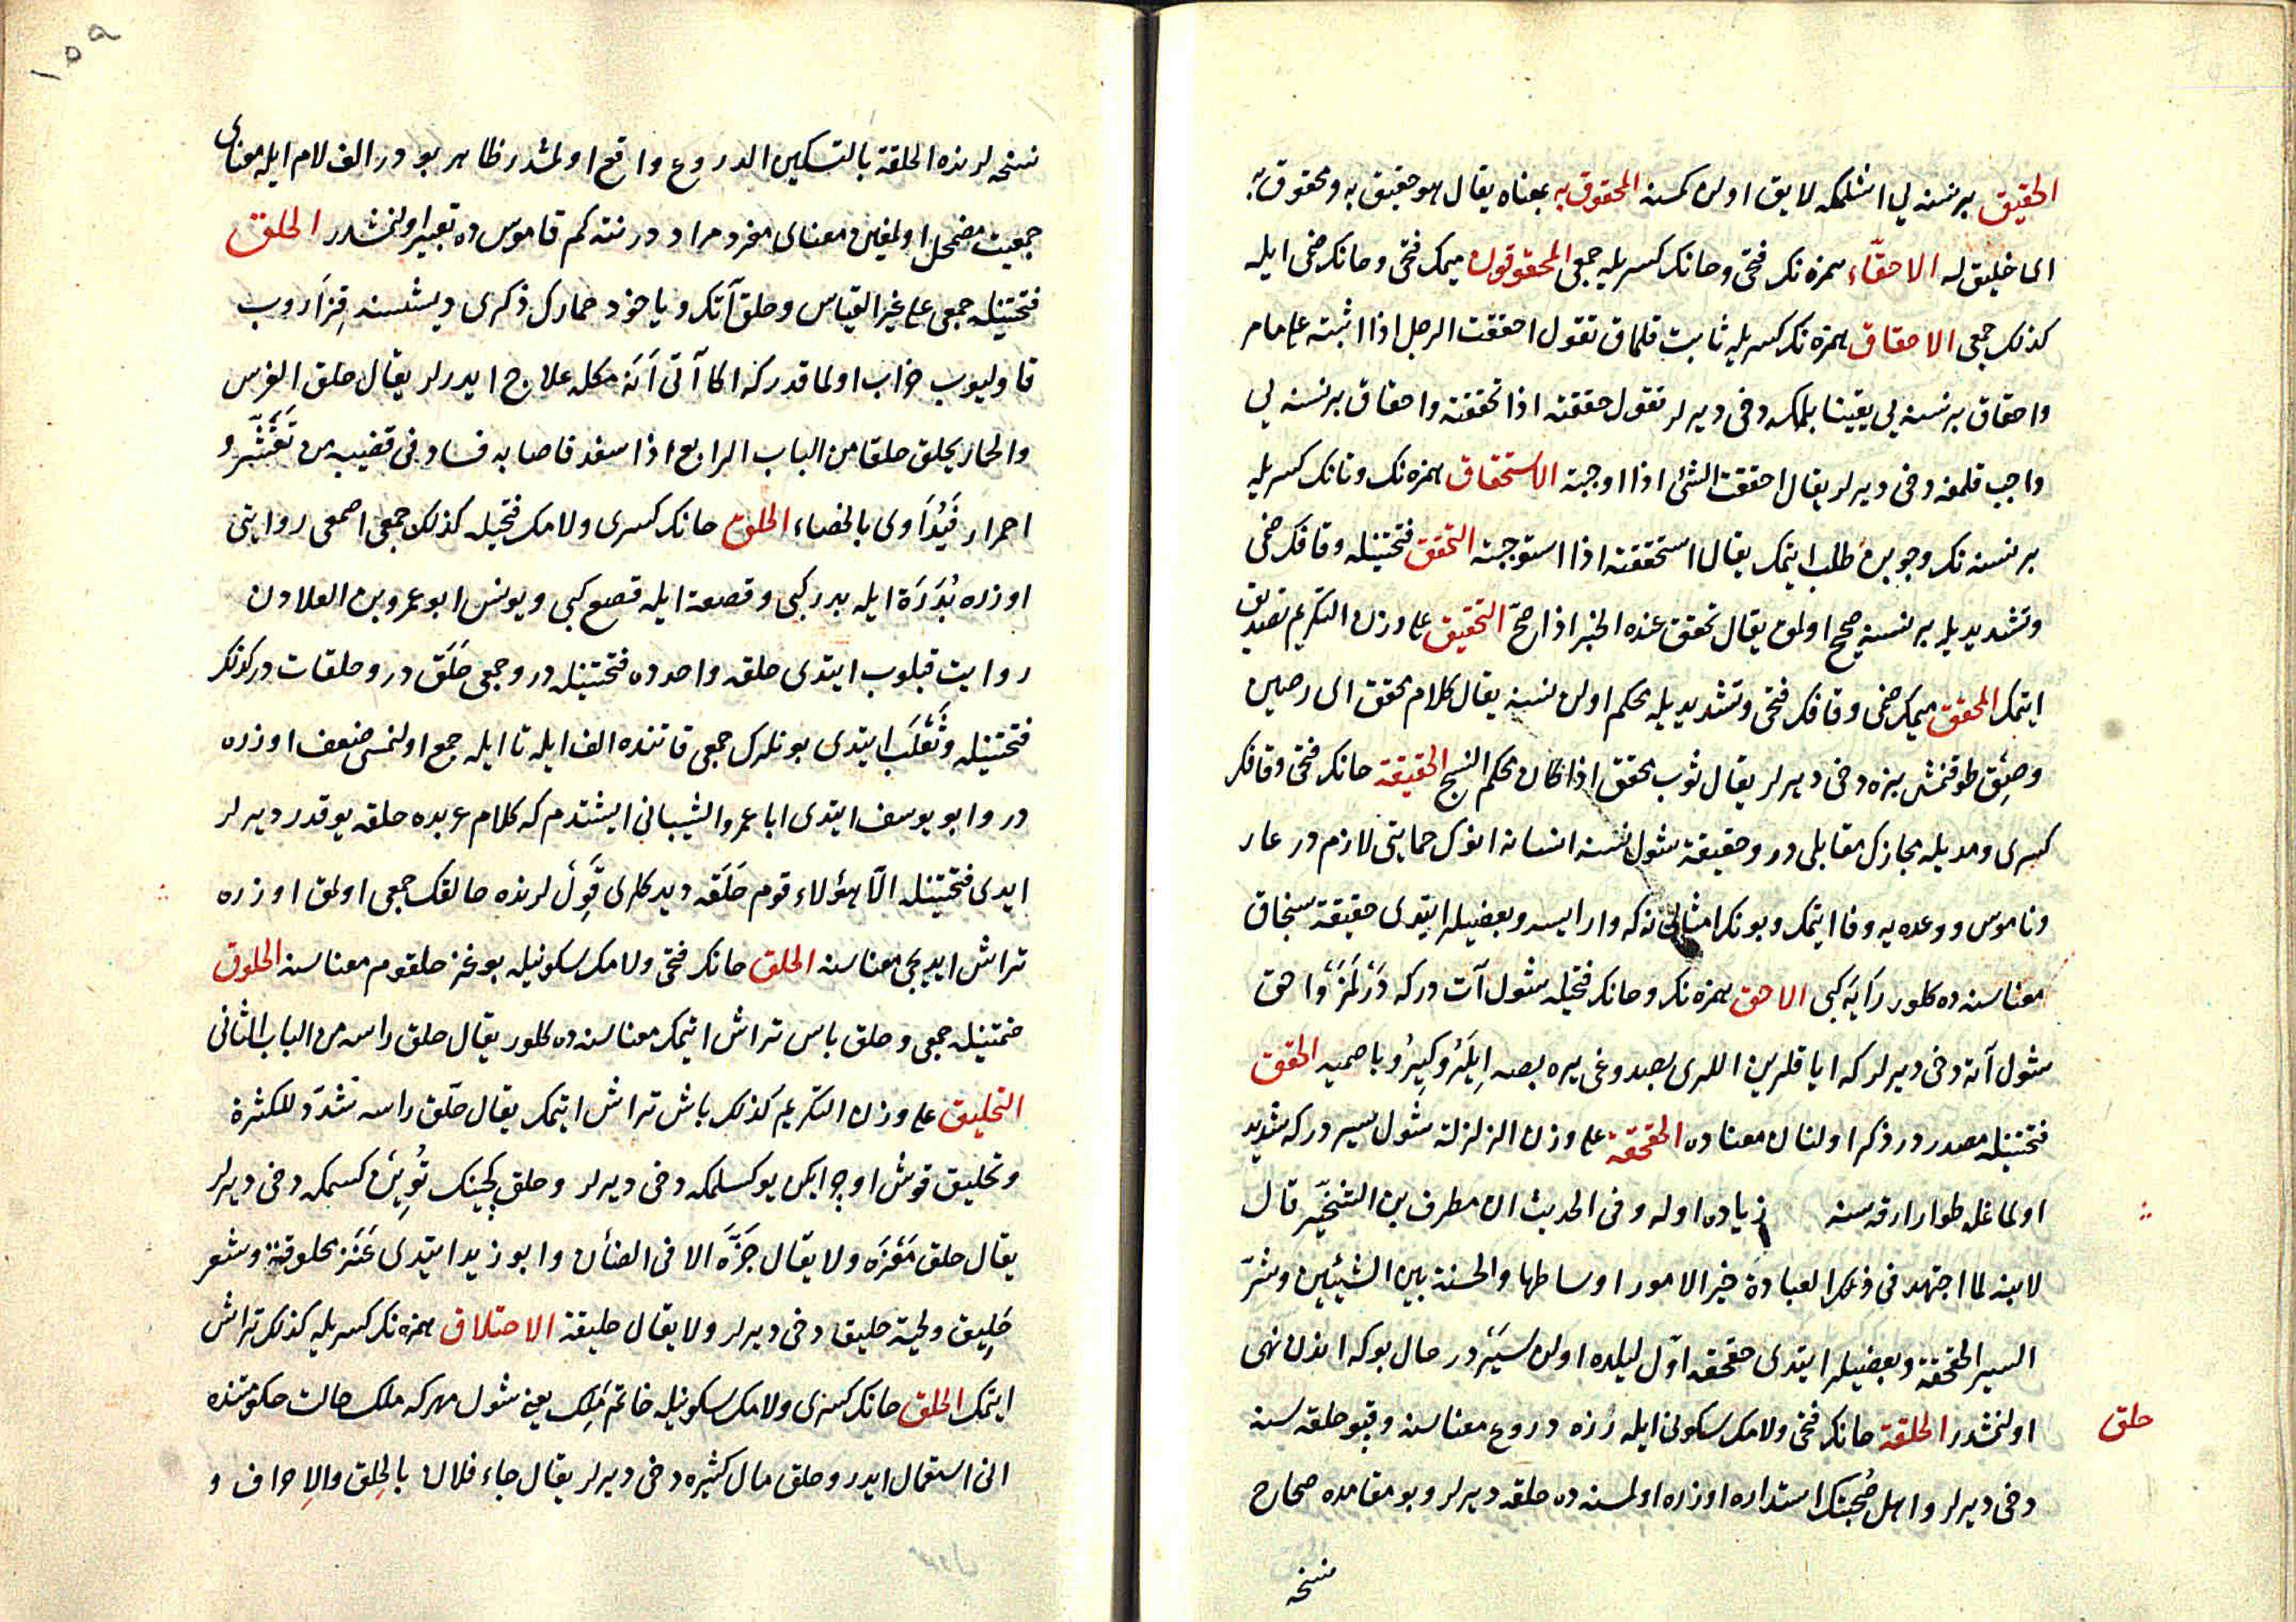 الحقيق بر نسنه يى اشلمكه لايق اولن كمسنه المحقوق به بمعناه يقال هو حقيق به ومحقوق به
اى خليق له الاحقّاء همزه نك فتحى وحانك كسريله جمعى المحقوقون ميمك فتحى وحانك ضمى ايله
كذلك جمعى الاحقاق همزه نك كسريله ثابت قلماق تقول احققت الرجل اذا اثبته على ما مر
واحقاق بر نسنه يى يقينا بلمكه دخى ديرلر تقول حققته اذا تحققته واحقاق بر نسنه يى
واجب قلمغه دخى ديرلر يقال احققت الشئ اذا اوجبته الاستحقاق همزه نك وتانك كسريله
بر نسنه نك وجوبين طلب ايتمك يقال استحققته اذا استوجبته التحقق فتحتينله وقافك ضمى
وتشديديله بر نسنه صحيح اولمق يقال تحقق عنده الخبر اذا صحّ التحقيق على وزن التكريم تصديق
ايتمك المحقق ميمك ضمى وقافك فتحى وتشديديله محكم اولن نسنه يقال كلام محقق اى رصين
وصيق طوقنمش بزه دخى ديرلر يقال ثوب محقق اذا كان محكم النسج الحقيقة حانك فتحى وقافك
كسرى ومديله مجازك مقابلى در وحقيقة شول نسنه انسانه انوك حمايتى لازم در عار
وناموس ووعده يه وفا ايتمك وبونك امثالى نه كه وار ايسه وبعضيلر ايتدى حقيقة سنجاق
معناسنه ده كلور رَايَه كبى الاحق همزه نك وحانك فتحيله شول آت دركه دَرْلَمَزْ واحق
شول آته دخى ديرلر كه اياقلرين اللرى بصدوغى يره بصه ايلَرُو كيرُو باصميه الحقق
فتحتينله مصدر در ذكر اولنان معناده الحقحقة على وزن الزلزلة شول سير دركه شديد
اولماغله طوار ارقه سنه زياده اوله وفى الحديث ان مطرف بن الشخّير قال
لابنه لما اجتهد فى العبادة خير الامور اوساطها والحسنة بين السيئتين وشرّ
السير الحقحقة وبعضيلر ايتدى حقحقه اوّل ليلده اولن سَيرْ در حال بوكه اندن نهى
حلق
اولنمشدر الحلقة حانك فتحى ولامك سكونى ايله زره دروع معناسنه وقپو حلقه سنه
دخى ديرلر واهل مجلسك استداره اوزره اولمسنه ده حلقه ديرلر وبو مقامده صحاح
نسخه
١٥٩
نسخه لرنده الحلقة بالتسكين الدروع واقع اولمشدر ظاهر بو در الف لام ايله معناى
جمعيت مضمحل اولمغين معناى مفرد مراد در نته كم قاموس ده تعبير اولنمشدر الحلق
فتحتينله جمعى على غير القياس وحلق آتك وياخود حمارك ذكرى ديشسنه قِزَاروب
قاوليوب خراب اولماقدر كه اكا آتى اَنَه مكله علاج ايدرلر يقال حلق الفرس
والحمار يحلق حلقا من الباب الرابع اذا سفد فاصابه فساد فى قضيبه من تَقَشُّرٍ و
احمرار فيُداوى بالخصاء الحلق حانك كسرى ولامك فتحيله كذلك جمعى اصمعى روايتى
اوزره بُدَرَة ايله بدر كبى وقصعة ايله قصع كبى ويونس ابو عمرو بن العلادن
روايت قيلوب ايتدى حلقه واحدده فتحتينله در وجمعى حَلَق در وحلقات دركذلك
فتحتينله وثَعْلَب ايتدى بونلرك جمعى قاتنده الف ايله تا ايله جمع اولنمسى ضعف اوزره
در وابو يوسف ايتدى ابا عمرو الشيبانى ايشتدم كه كلام عربده حلقه يوقدر ديرلر
ايدى فتحتينله الّا هؤلاء قوم حَلَقه ديدكلرى قَولْ لرنده حالقك جمعى اولمق اوزره
تراش ايديجى معناسنه الحلق حانك فتحى ولامك سكونيله بوغز حلقوم معناسنه الحلوق
ضمتينله جمعى وحلق باش تراش ايتمك معناسنه ده كلور يقال حلق راسه من الباب الثانى
التحليق على وزن التكريم كذلك باش تراش ايتمك يقال حلّق راسه شُدّد للكثرة
وتحليق قوش اوچرايكن يوكسلمكه دخى ديرلر وحلق كچينك تُويِنْ كسمكه دخى ديرلر
يقال حلق مَعْزَه ولا يقال جَزَّه الا فى الضأن وابو زيد ايتدى عَنَز محلوقة وشعر
حَلِيق ولحية حليق دخى ديرلر ولا يقال حليقة الاحتلاق همزه نك كسريله كذلك تراش
ايتمك الحلق حانك كسرى ولامك سكونيله خاتم مَلِك يعنى شول مهركه ملك حالت حكومتنده
انى استعمال ايدر وحلق مال كثيره دخى ديرلر يقال جاء فلان بالحِلق والاِحراف و